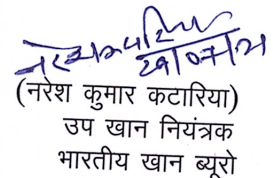 29/07/21
(नरेश कुमार कटारिया)
उप खान नियंत्रक
भारतीय खान ब्यूरो